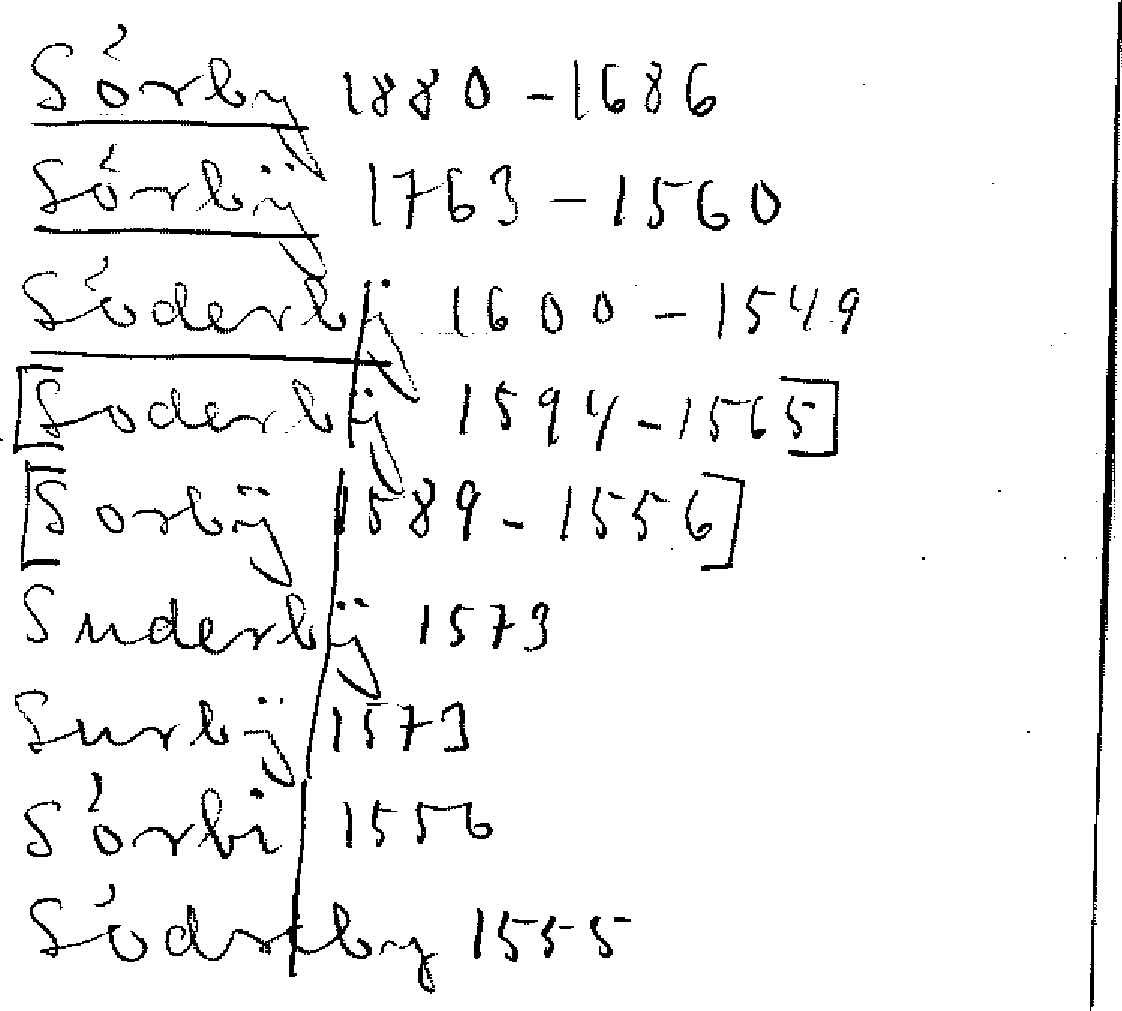 Sörby 1880-1686
Sörbÿ 1763-1560
Söderbÿ 1600-1549
[Soderbÿ 1594-1565]
[Sorbÿ 1589-1556]
Suderbÿ 1573
Surbÿ 1573
Sörbi 1556
Södreby 1555